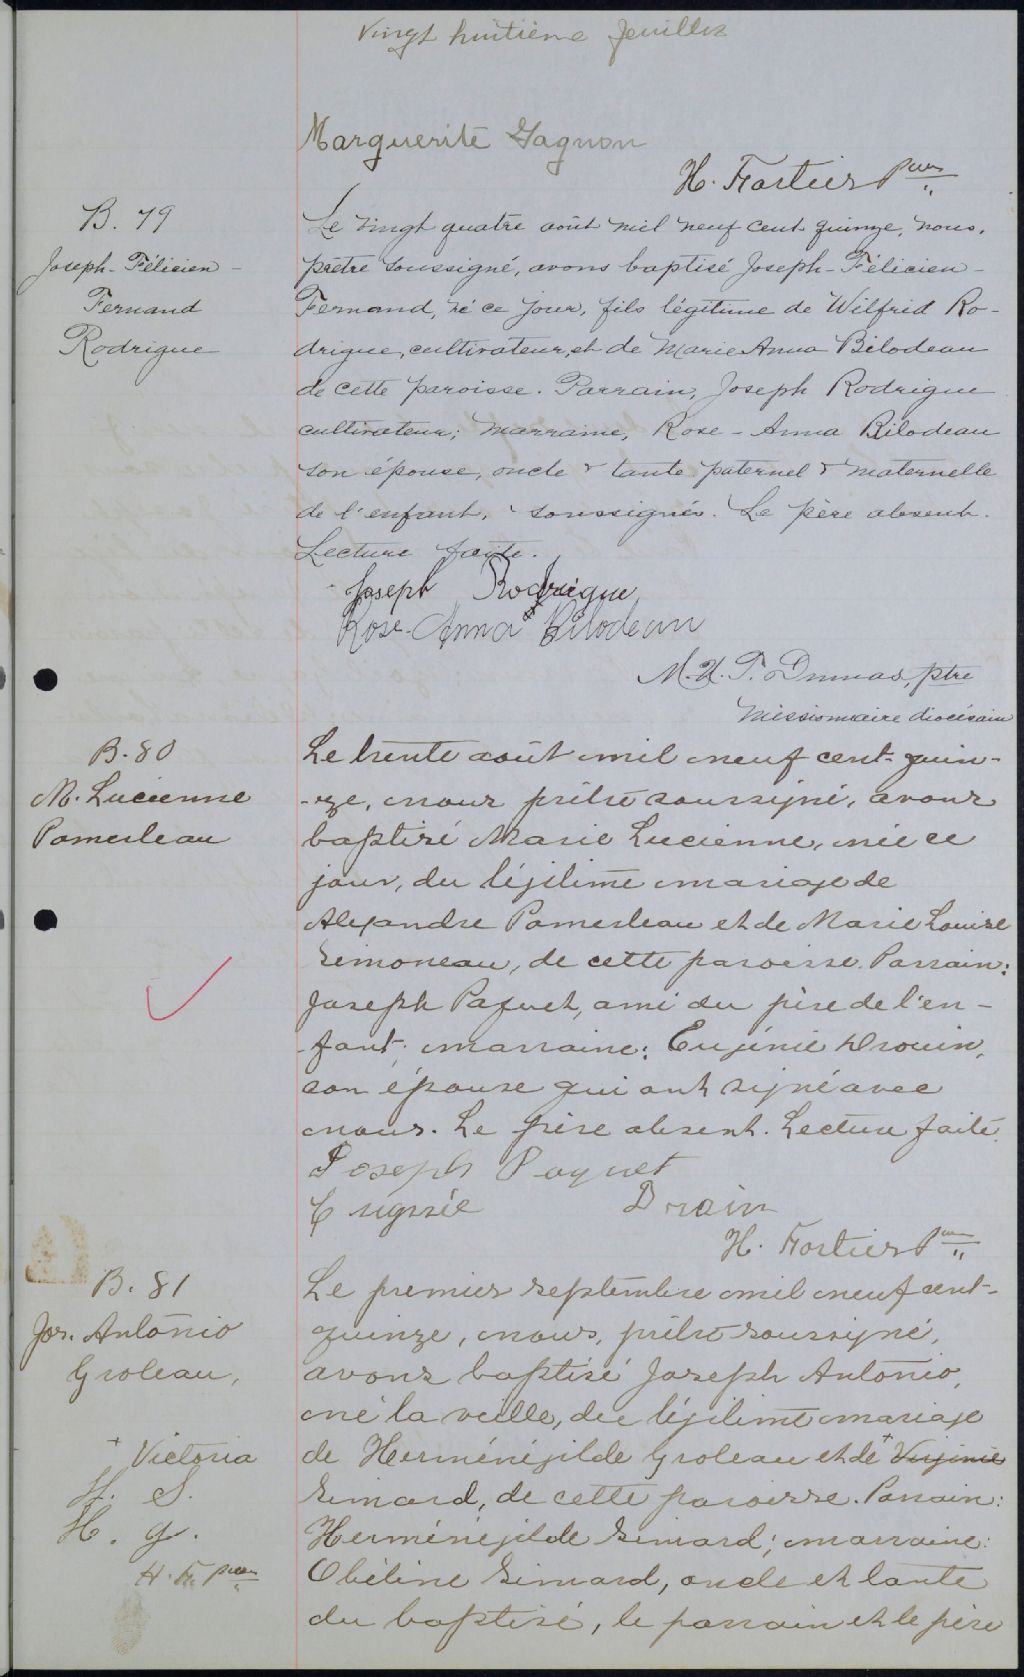 Vingt huitième feuillet
Marguerite Gagnon
H. Fortier Ptre
B. 79
Joseph-Félicien-
Fernand
Rodrigue
Le vingt quatre août mil neuf cent quinze, nous,
prêtre soussigné, avons baptisé Joseph-Félicien-
Fernand, né ce jour, fils légitime de Wilfrid Ro-
drigue, cultivateur, et de Marie Anna Bilodeau
de cette paroisse. Parrain, Joseph Rodrigue
cultivateur; marraine, Rose-Anna Bilodeau
son épouse, oncle & tante paternel & maternelle
de l'enfant, soussignés. Le père absent.
Lecture faite.
Joseph Rodrigue
Rose-Anna Bilodeau
M. U. T. Dumas, ptre
missionnaire diocésain
B. 80
M. Lucienne
Pomerleau
Le trente août mil neuf cent-quin-
-ze, nous prêtre soussigné, avons
baptisé Marie Lucienne, née ce
jour, du légitime mariage de
Alexandre Pomerleau et de Marie Louise
Simoneau, de cette paroisse. Parrain:
Joseph Paquet, ami du père de l'en-
-fant; marraine: Eugénie Drouin,
son épouse qui ont signé avec
nous. Le père absent. Lecture faite.
Joseph Paquet
Eugnée Drain
H. Fortier Ptre
B. 81
Jos. Antonio
Groleau,
+ Victoria
H. S.
H. G.
H. F. ptre
Le premier septembre mil neuf cent-
quinze, nous, prêtre soussigné,
avons baptisé Joseph Antonio,
né la veille, du légitime mariage
de Herménégilde Groleau et de + Virginie
Simard, de cette paroisse. Parrain:
Herménégilde Simard; marraine:
Obéline Simard, oncle et tante
du baptisé, le parrain et le père